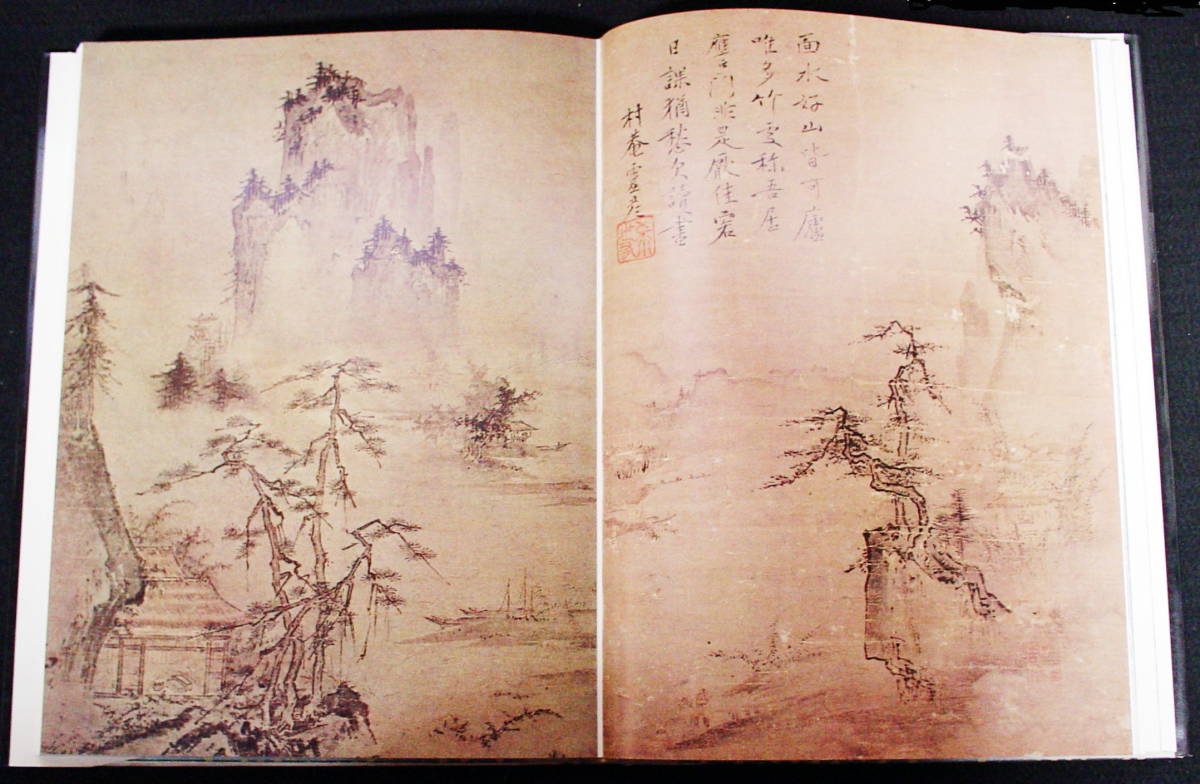 面水好山皆可廬
唯多竹處称吾居
應門非是厭佳客
日課猶愁欠讀書
村庵霊彦